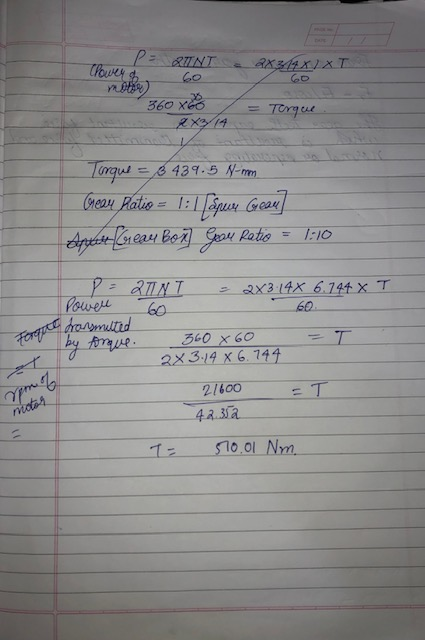 P = 2πNT / 60 = 2×3.14×1×T / 60
(Power of motor)
360 × 60 / 2×3.14 = Torque
Torque = 3439.5 N-mm
Gear Ratio = 1:1 [Spur Gear]
Spur [Gear Box] Gear Ratio = 1:10
P = 2πNT / 60 = 2×3.14× 6.744 × T / 60.
Power transmitted by torque.
360 × 60 / 2×3.14×6.744 = T
Torque
= T
rpm of motor
=
21600 / 42.352 = T
T = 510.01 Nm.